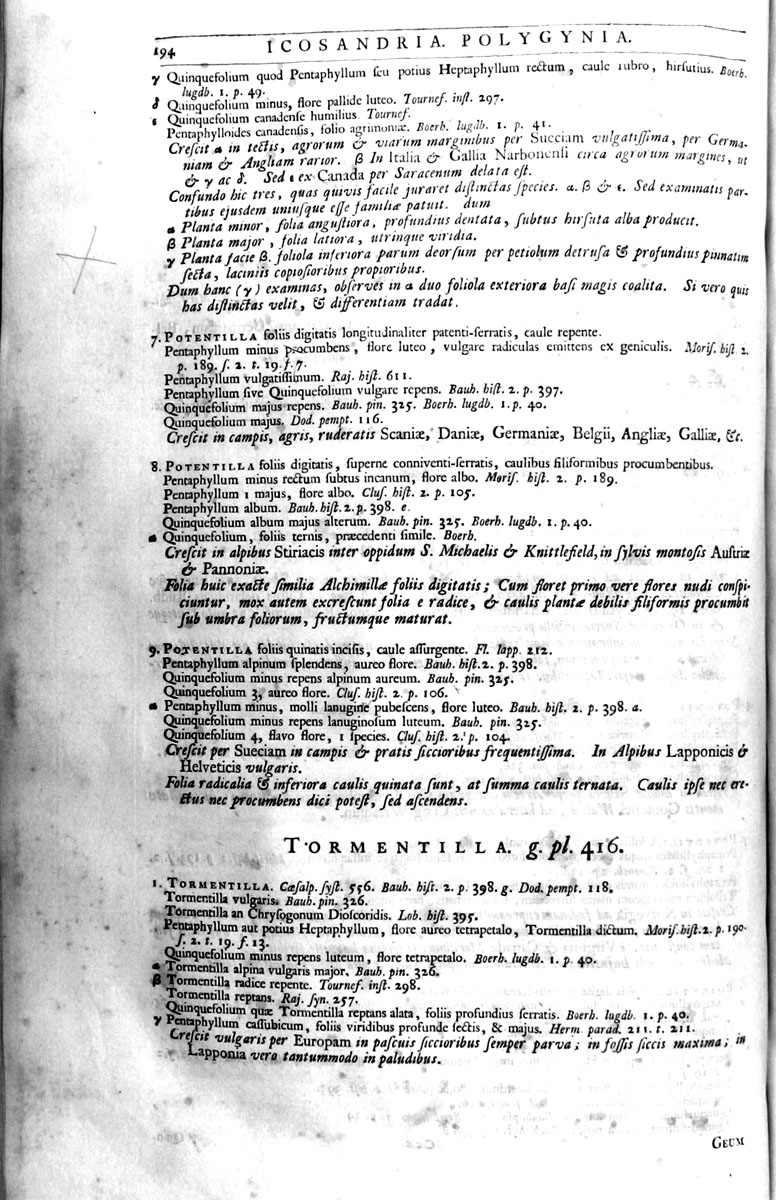 194 ICOSANDRIA. POLYGYNIA.
γ Quinquefolium quod Pentaphyllum seu potius Heptaphyllum rectum, caule rubro, hirsutius. Boerh.
lugdb. 1. p. 49.
δ Quinquefolium minus, flore pallide luteo. Tournef. inst. 297.
ε Quinquefolium canadense humilius. Tournef.
Pentaphylloides canadensis, folio agrimoniæ. Boerh. lugdb. 1. p. 41.
Crescit α in tectis, agrorum & viarum marginibus per Sueciam vulgatissima, per Germa-
niam & Angliam rarior. β In Italia & Gallia Narbonensi circa agrorum margines, ut
& γ ac δ. Sed ε ex Canada per Saracenum delata est.
Confundo hic tres, quas quivis facile juraret distinctas species. α. β & ε. Sed examinatis par-
tibus ejusdem uniusque esse familiæ patuit. dum
α Planta minor, folia angustiora, profundius dentata, subtus hirsuta alba producit.
β Planta major, folia latiora, utrinque viridia.
γ Planta facie β. foliola inferiora parum deorsum per petiolum detrusa & profundius pinnatim
secta, laciniis copiosioribus propioribus.
Dum hanc (γ) examinas, observes in α duo foliola exteriora basi magis coalita. Si vero quis
has distinctas velit, & differentiam tradat.
7. POTENTILLA foliis digitatis longitudinaliter patenti-serratis, caule repente.
Pentaphyllum minus procumbens, flore luteo, vulgare radiculas emittens ex geniculis. Moris. hist 2.
p. 189. s. 2. t. 19. f. 7.
Pentaphyllum vulgatissimum. Raj. hist. 611.
Pentaphyllum sive Quinquefolium vulgare repens. Bauh. hist. 2. p. 397.
Quinquefolium majus repens. Bauh. pin. 325. Boerh. lugdb. 1. p. 40.
Quinquefolium majus. Dod. pempt. 116.
Crescit in campis, agris, ruderatis Scaniæ, Daniæ, Germaniæ, Belgii, Angliæ, Galliæ, &c.
8. POTENTILLA foliis digitatis, superne conniventi-serratis, caulibus filiformibus procumbentibus.
Pentaphyllum minus rectum subtus incanum, flore albo. Moris. hist. 2. p. 189.
Pentaphyllum 1 majus, flore albo. Clus. hist. 2. p. 105.
Pentaphyllum album. Bauh. hist. 2. p. 398. e.
Quinquefolium album majus alterum. Bauh. pin. 325. Boerh. lugdb. 1. p. 40.
α Quinquefolium, foliis ternis, præcedenti simile. Boerh.
Crescit in alpibus Stiriacis inter oppidum S. Michaelis & Knittlefield, in sylvis montosis Austriæ
& Pannoniæ.
Folia huic exacte similia Alchimillæ foliis digitatis; Cum floret primo vere flores nudi conspi-
ciuntur, mox autem excrescunt folia e radice, & caulis plantæ debilis filiformis procumbit
sub umbra foliorum, fructumque maturat.
9. POTENTILLA foliis quinatis incisis, caule assurgente. Fl. lapp. 212.
Pentaphyllum alpinum splendens, aureo flore. Bauh. hist. 2. p. 398.
Quinquefolium minus repens alpinum aureum. Bauh. pin. 325.
Quinquefolium 3, aureo flore. Clus. hist. 2. p. 106.
α Pentaphyllum minus, molli lanugine pubescens, flore luteo. Bauh. hist. 2. p. 398. a.
Quinquefolium minus repens lanuginosum luteum. Bauh. pin. 325.
Quinquefolium 4, flavo flore, 1 species. Clus. hist. 2. p. 104.
Crescit per Sueciam in campis & pratis siccioribus frequentissima. In Alpibus Lapponicis &
Helveticis vulgaris.
Folia radicalia & inferiora caulis quinata sunt, at summa caulis ternata. Caulis ipse nec ere-
ctus nec procumbens dici potest, sed ascendens.
TORMENTILLA. g. pl. 416.
1. TORMENTILLA. Cæsalp. syst. 556. Bauh. hist. 2. p. 398. g. Dod. pempt. 118.
Tormentilla vulgaris. Bauh. pin. 326.
Tormentilla an Chrysogonum Dioscoridis. Lob. hist. 395.
Pentaphyllum aut potius Heptaphyllum, flore aureo tetrapetalo, Tormentilla dictum. Moris. hist. 2. p. 190.
s. 2. t. 19. f. 13.
Quinquefolium minus repens luteum, flore tetrapetalo. Boerh. lugdb. 1. p. 40.
α Tormentilla alpina vulgaris major. Bauh. pin. 326.
β Tormentilla radice repente. Tournef. inst. 298.
Tormentilla reptans. Raj. syn. 257.
Quinquefolium quæ Tormentilla reptans alata, foliis profundius serratis. Boerh. lugdb. 1. p. 40.
γ Pentaphyllum cassubicum, foliis viridibus profunde sectis, & majus. Herm parad. 211. t. 211.
Crescit vulgaris per Europam in pascuis siccioribus semper parva; in fossis siccis maxima; in
Lapponia vero tantummodo in paludibus.
GEUM